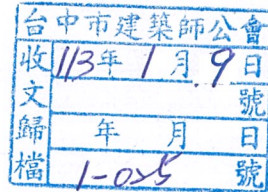 台中市建築師公會
收文 113年 1月 9日
號
歸檔 年 月 日
1-025 號